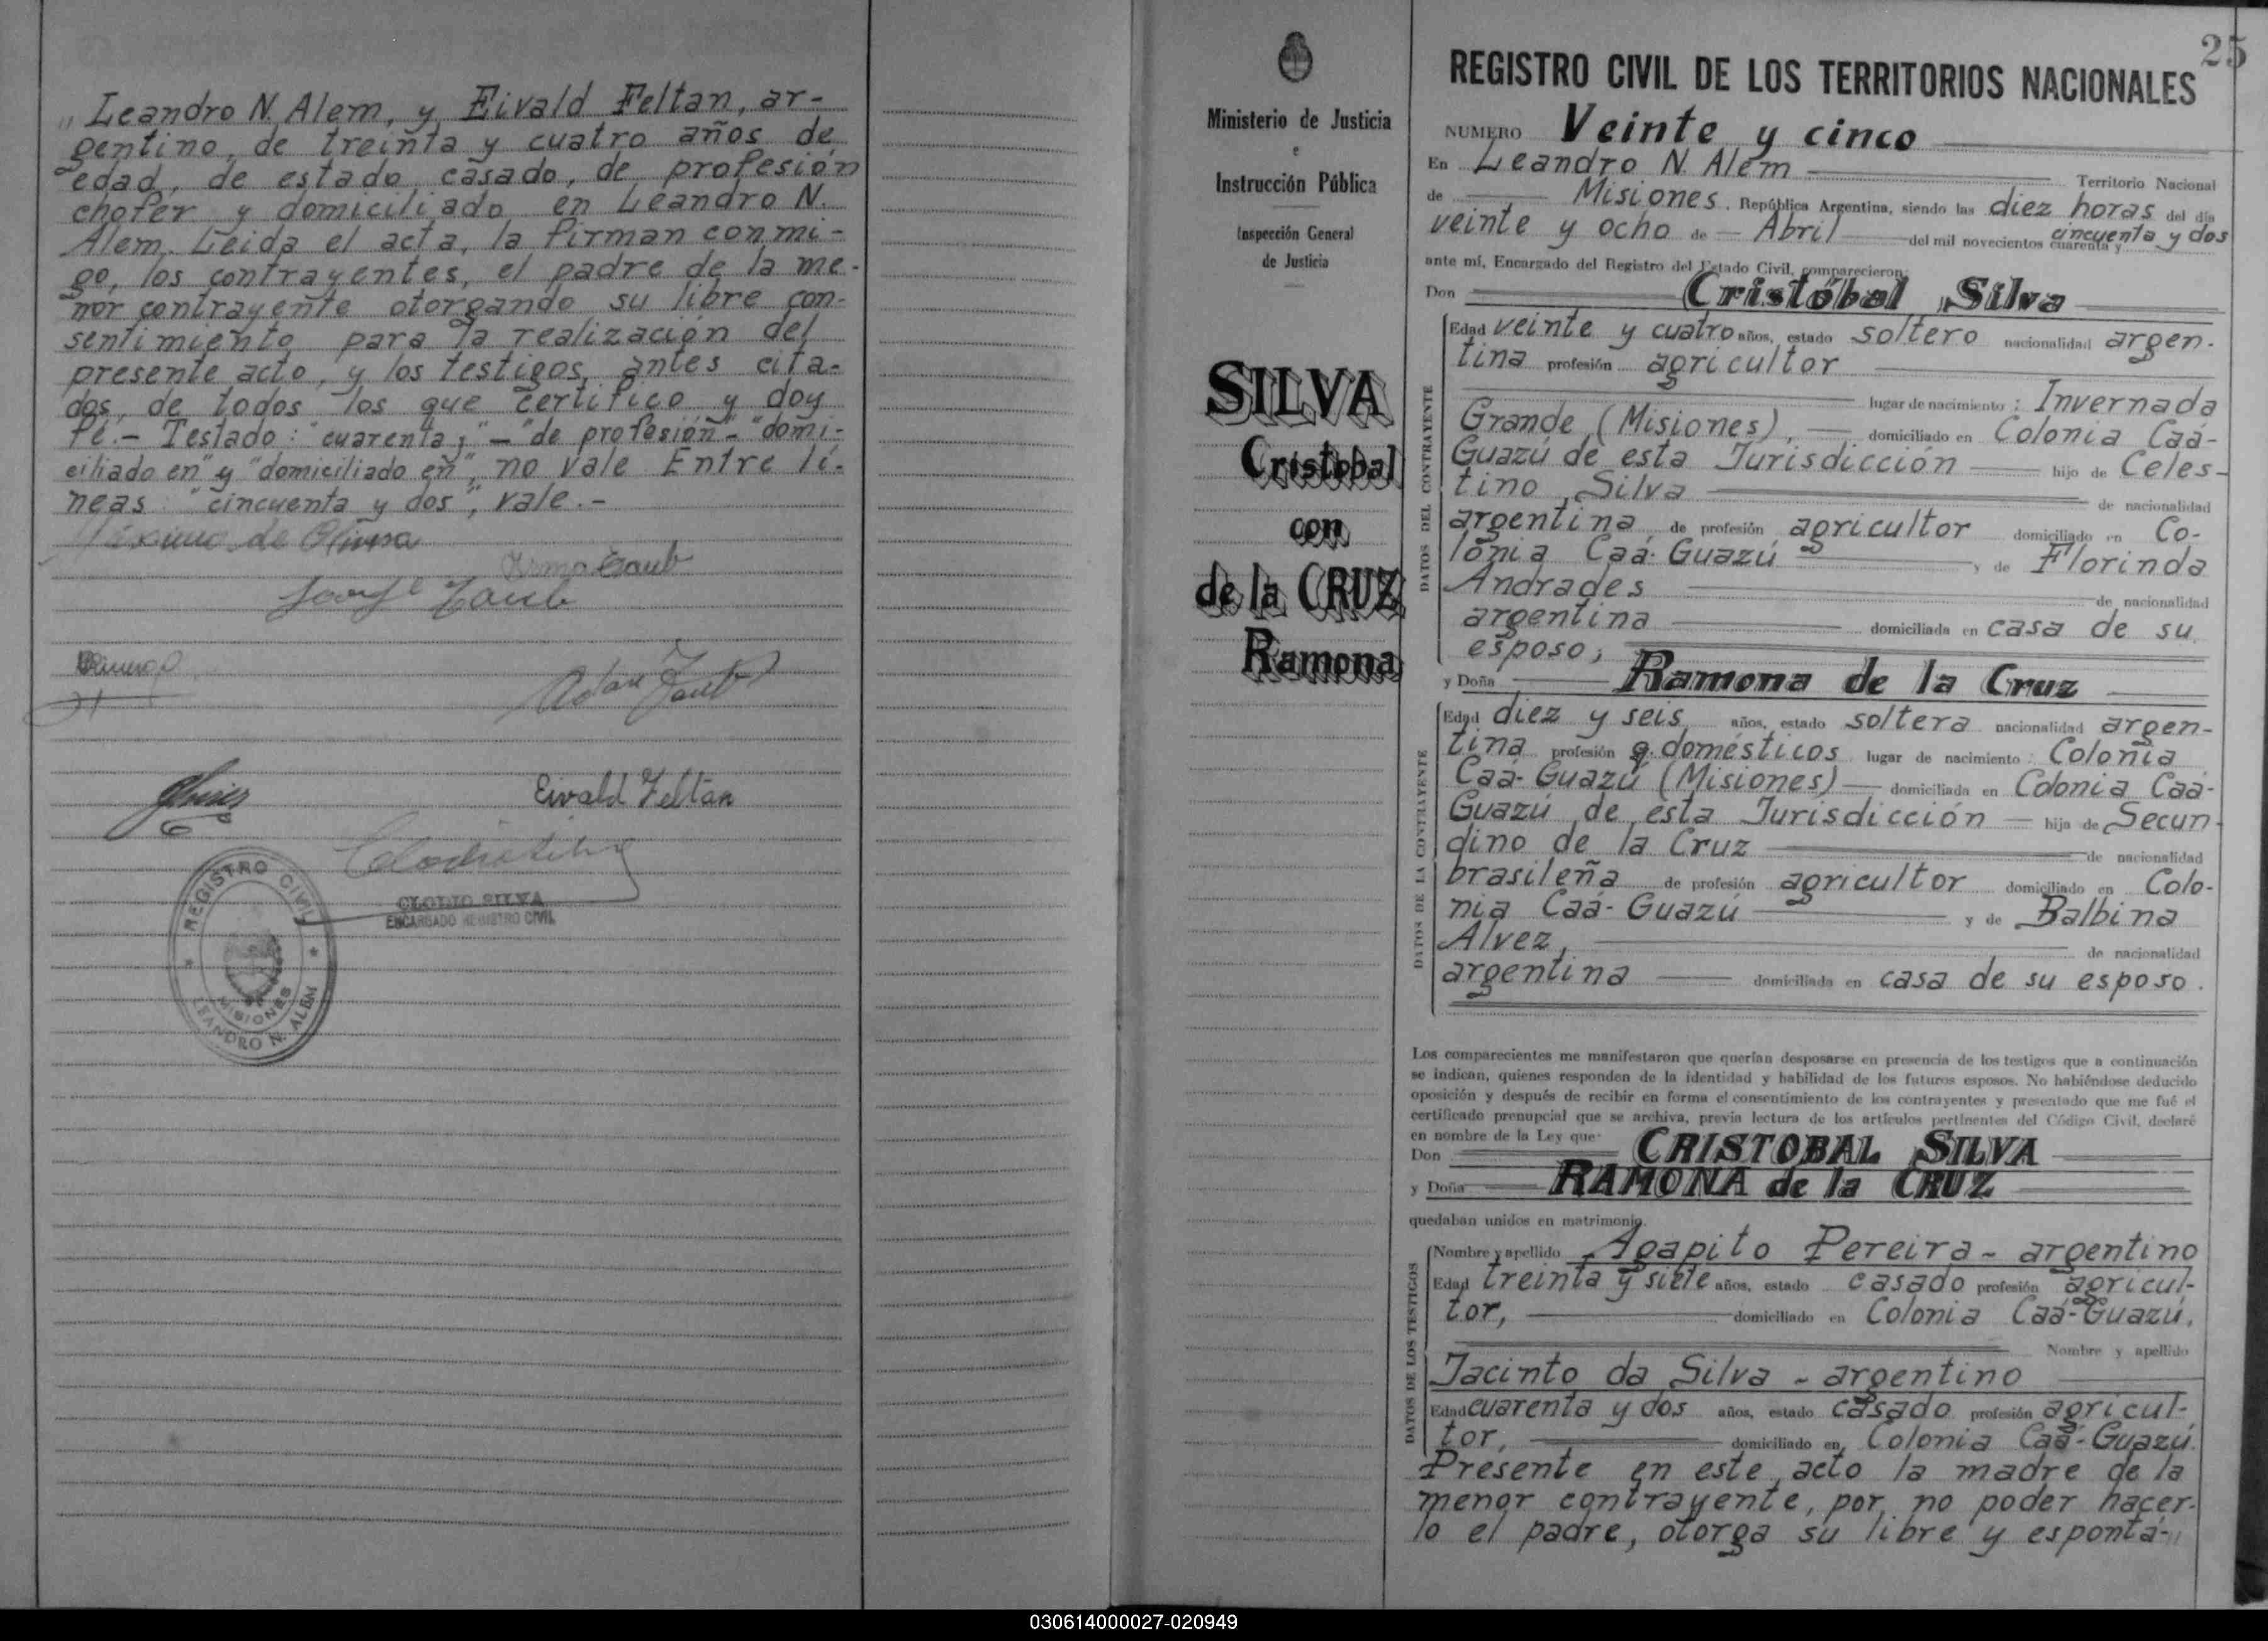 Leandro N. Alem, y Eivald Feltan, ar-
gentino, de treinta y cuatro años de
edad, de estado casado, de profesión
chofer y domiciliado en Leandro N.
Alem. Leida el acta, la firman conmi-
go, los contrayentes, el padre de la me-
nor contrayente otorgando su libre con-
sentimiento para la realización del
presente acto, y los testigos antes cita-
dos, de todos los que certifico y doy
fé.- Testado: "cuarenta y" - "de profesión" - "domi-
ciliado en" y "domiciliado en", no vale Entre lí-
neas "cincuenta y dos", vale.-
de
Irma Taub
Taub
Adan Taub
Eivald Feltan
CLODIO SILVA
ENCARGADO REGISTRO CIVIL
REGISTRO CIVIL
MISIONES
LEANDRO N. ALEM
Ministerio de Justicia
e
Instrucción Pública
Inspección General
de Justicia
SILVA
Cristobal
con
de la CRUZ
Ramona
25
REGISTRO CIVIL DE LOS TERRITORIOS NACIONALES
NUMERO Veinte y cinco
En Leandro N. Alem Territorio Nacional
de Misiones. República Argentina, siendo las diez horas del día
veinte y ocho de Abril del mil novecientos cuarenta y cincuenta y dos
ante mí, Encargado del Registro del Estado Civil, comparecieron:
Don Cristóbal Silva
DATOS DEL CONTRAYENTE
Edad veinte y cuatro años, estado soltero nacionalidad argen-
tina profesión agricultor
lugar de nacimiento: Invernada
Grande (Misiones), domiciliado en Colonia Caá-
Guazú de esta Jurisdicción hijo de Celes-
tino Silva de nacionalidad
argentina de profesión agricultor domiciliado en Co-
lonia Caá-Guazú y de Florinda
Andrades de nacionalidad
argentina domiciliada en casa de su
esposo;
y Doña Ramona de la Cruz
DATOS DE LA CONTRAYENTE
Edad diez y seis años, estado soltera nacionalidad argen-
tina profesión q. domésticos lugar de nacimiento: Colonia
Caá-Guazú (Misiones) domiciliada en Colonia Caá-
Guazú de esta Jurisdicción hija de Secun-
dino de la Cruz de nacionalidad
brasileña de profesión agricultor domiciliado en Colo-
nia Caá-Guazú y de Balbina
Alvez, de nacionalidad
argentina domiciliada en casa de su esposo.
Los comparecientes me manifestaron que querían desposarse en presencia de los testigos que a continuación
se indican, quienes responden de la identidad y habilidad de los futuros esposos. No habiéndose deducido
oposición y después de recibir en forma el consentimiento de los contrayentes y presentado que me fué el
certificado prenupcial que se archiva, previa lectura de los artículos pertinentes del Código Civil, declaré
en nombre de la Ley que:
Don CRISTOBAL SILVA
y Doña RAMONA de la CRUZ
quedaban unidos en matrimonio.
DATOS DE LOS TESTIGOS
Nombre y apellido Agapito Pereira - argentino
Edad treinta y siete años, estado casado profesión agricul-
tor, domiciliado en Colonia Caá-Guazú.
Nombre y apellido
Jacinto da Silva - argentino
Edad cuarenta y dos años, estado casado profesión agricul-
tor, domiciliado en Colonia Caá-Guazú.
Presente en este acto la madre de la
menor contrayente, por no poder hacer-
lo el padre, otorga su libre y espontá-
030614000027-020949